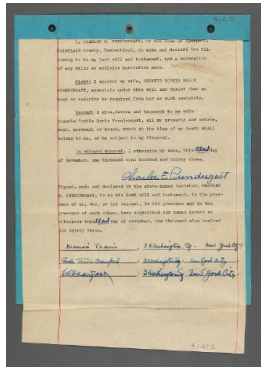 A127
I, CHARLES E. PENDERGAST, of the Town of
Fairfield County, Connecticut, do make and declare the fol-
lowing to be my last will and testament, and a revocation
of any wills or codicils heretofore made.
First: I appoint my wife,
PENDERGAST, executrix under this will and direct that no
bond or security be required from her as such executrix.
Second: I give, devise and bequeath to my wife
Pendergast, all my property and estate,
real, personal or mixed, which at the time of my death shall
belong to me, or be subject to my disposal.
In witness whereof, I subscribe my name, this 22nd day
of November, One thousand nine hundred and thirty three.
Charles E Pendergast
Signed, made and declared by the above-named testator, CHARLES
E. PENDERGAST, to be his last will and testament, in the presen-
ce of us, who, at his request, in his presence and in the
presence of each other, have subscribed our names hereto as
witnesses this 22nd day of November, One thousand nine hundred
and thirty three.
Travis 3 Washington Sq. New York City
3 Washington Sq. New York City
3 Washington Sq. New York City